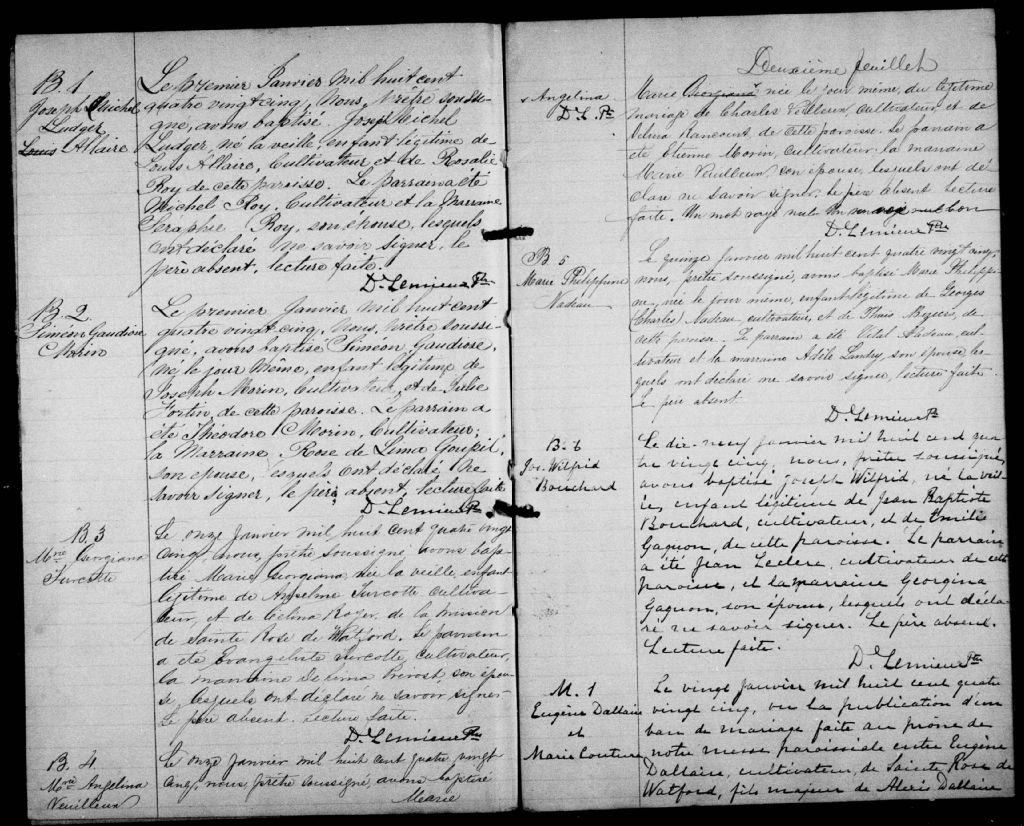 B. 1
Joseph Michel
Ludger
Louis Allaire
Le premier Janvier mil huit cent
quatre vingt cinq, Nous, Prêtre soussi-
gné, avons baptisé Joseph Michel
Ludger, né la veille, enfant légitime de
Louis Allaire, Cultivateur, et de Rosalie
Roy de cette paroisse. Le parrain a été
Michel Roy, Cultivateur et la Marraine
Seraphie Roy, son épouse, lesquels
ont déclaré ne savoir signer, le
père absent, lecture faite.
D. Lemieux Ptre
B. 2.
Siméon Gaudiose
Morin
Le premier Janvier mil huit cent
quatre vingt cinq, Nous, prêtre sousse-
gné, avons baptisé Siméon Gaudiose,
né le jour même, enfant légitime de
Joseph Morin, Cultivateur, et de Julie
Fortin de cette paroisse. Le parrain a
été Théodore Morin, Cultivateur;
la Marraine, Rose de Lima Goupil,
son epouse, lesquels ont déclaré ne
savoir signer, le père absent, lecture faite
D. Lemieux Ptre
B. 3
Mne Georgiana
Turcotte
Le onze Janvier mil huit cent quatre vingt
cinq, nous, prêtre soussigné, avons bap-
tisé Marie Georgiana, née la veille, enfant
légitime de Anselme Turcotte cultiva-
teur, et de Celina Royer, de la mission
de Sainte Rose de Watford. Le parrain
a été Evangeliste Turcotte, cultivateur,
la marraine Prevost, son épou-
se lesquels ont déclaré ne savoir signer
Le père absent. Lecture faite.
D. Lemieux Ptre
B. 4
Angelina
Veuilleux
Le onze Janvier mil huit cent quatre vingt
cinq, nous, prêtre soussigné, avons baptisé
Marie
Deuxième feuillet
x Angelina
D. L. Ptre
Marie Georgiana x, née le jour même, du légitime
mariage de Charles Veilleux, cultivateur, et de
Rancourt, de cette paroisse. Le parrain a
été Etienne Morin, cultivateur la marraine
Marie Veuilleux, son épouse, lesquels ont dé-
claré ne savoir signer. Le père absent Lecture
faite. Un mot rayé nul bon
D. Lemieux Ptre
B 5
Marie Philippine
Nadeau
Le quinze Janvier mil huit cent quatre vingt cinq,
nous, prêtre soussigné, avons baptisé Marie Philippi-
ne, née le jour même, enfant légitime de Georges
(Charles) Nadeau, cultivateur, et de Thaïs Mercier, de
cette paroisse. Le parrain a été Vital Nadeau, cul-
tivateur et la marraine Adèle Landry, son épouse les-
quels ont déclaré ne savoir signer, lecture faite.
Le père absent
D. Lemieux Ptre
B. 6
Jos. Wilfrid
Bouchard
Le dix-neuf janvier mil huit cent qua-
tre vingt cinq, nous, prêtre soussigné
avons baptisé Joseph Wilfrid, né la veil-
le, enfant légitime de Jean Baptiste
Bouchard, cultivateur, et de Emilie
Gagnon, de cette paroisse. Le parrain
a été Jean Leclerc, cultivateur de cette
paroisse, et la marraine Georgina
Gagnon, son épouse, lesquels ont décla-
ré ne savoir signer. Le père absent.
Lecture faite.
D. Lemieux Ptre
M. 1
Eugène Dallaire
et
Marie Couture
Le vingt janvier mil huit cent quatre
vingt cinq, vu la publication d'un
banc de mariage faite au prône de
notre messe paroissiale entre Eugène
Dallaire, cultivateur, de Sainte Rose de
Watford, fils majeur de Alexis Dallaire